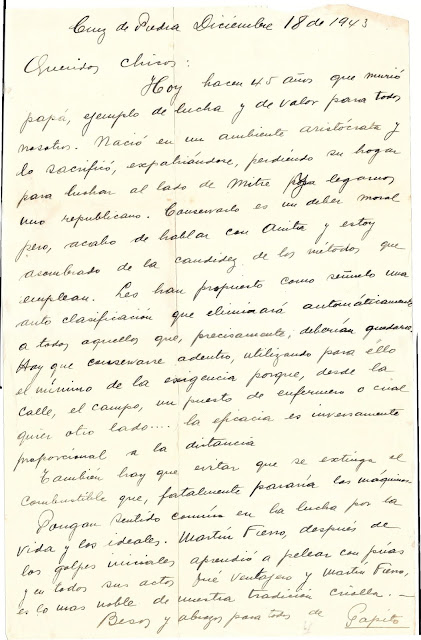 Cruz de Piedra Diciembre 18 de 1943
Queridos chicos:
Hoy hacen 45 años que murió
papá, ejemplo de lucha y de valor para todos
nosotros. Nació en un ambiente aristócrata y
lo sacrificó, expatriándose, perdiendo su hogar
para luchar al lado de Mitre legarnos
uno republicano. Conservarlo es un deber moral
pero, acabo de hablar con Anita y estoy
asombrado de la candidez de los métodos que
emplean. Les han propuesto como señuelo una
auto clasificación que eliminará automáticamente
a todos aquellos que, precisamente, deberían quedarse.
Hay que conservarse adentro, utilizando para éllo
el mínimo de la exigencia porque, desde la
calle, el campo, un puesto de enfermero o cual
quier otro lado.... la eficacia es inversamente
proporcional a la distancia
También hay que evitar que se extinga el
combustible que, fatalmente pararía las máquinas
Pongan sentido común en la lucha por la
vida y los ideales. Martín Fierro, después de
los golpes iniciales aprendió a pelear con púas
y en todos sus actos fué ventajero y Martín Fierro,
es lo mas noble de nuestra tradición criolla. —
Besos y abrazos para todos de Papito